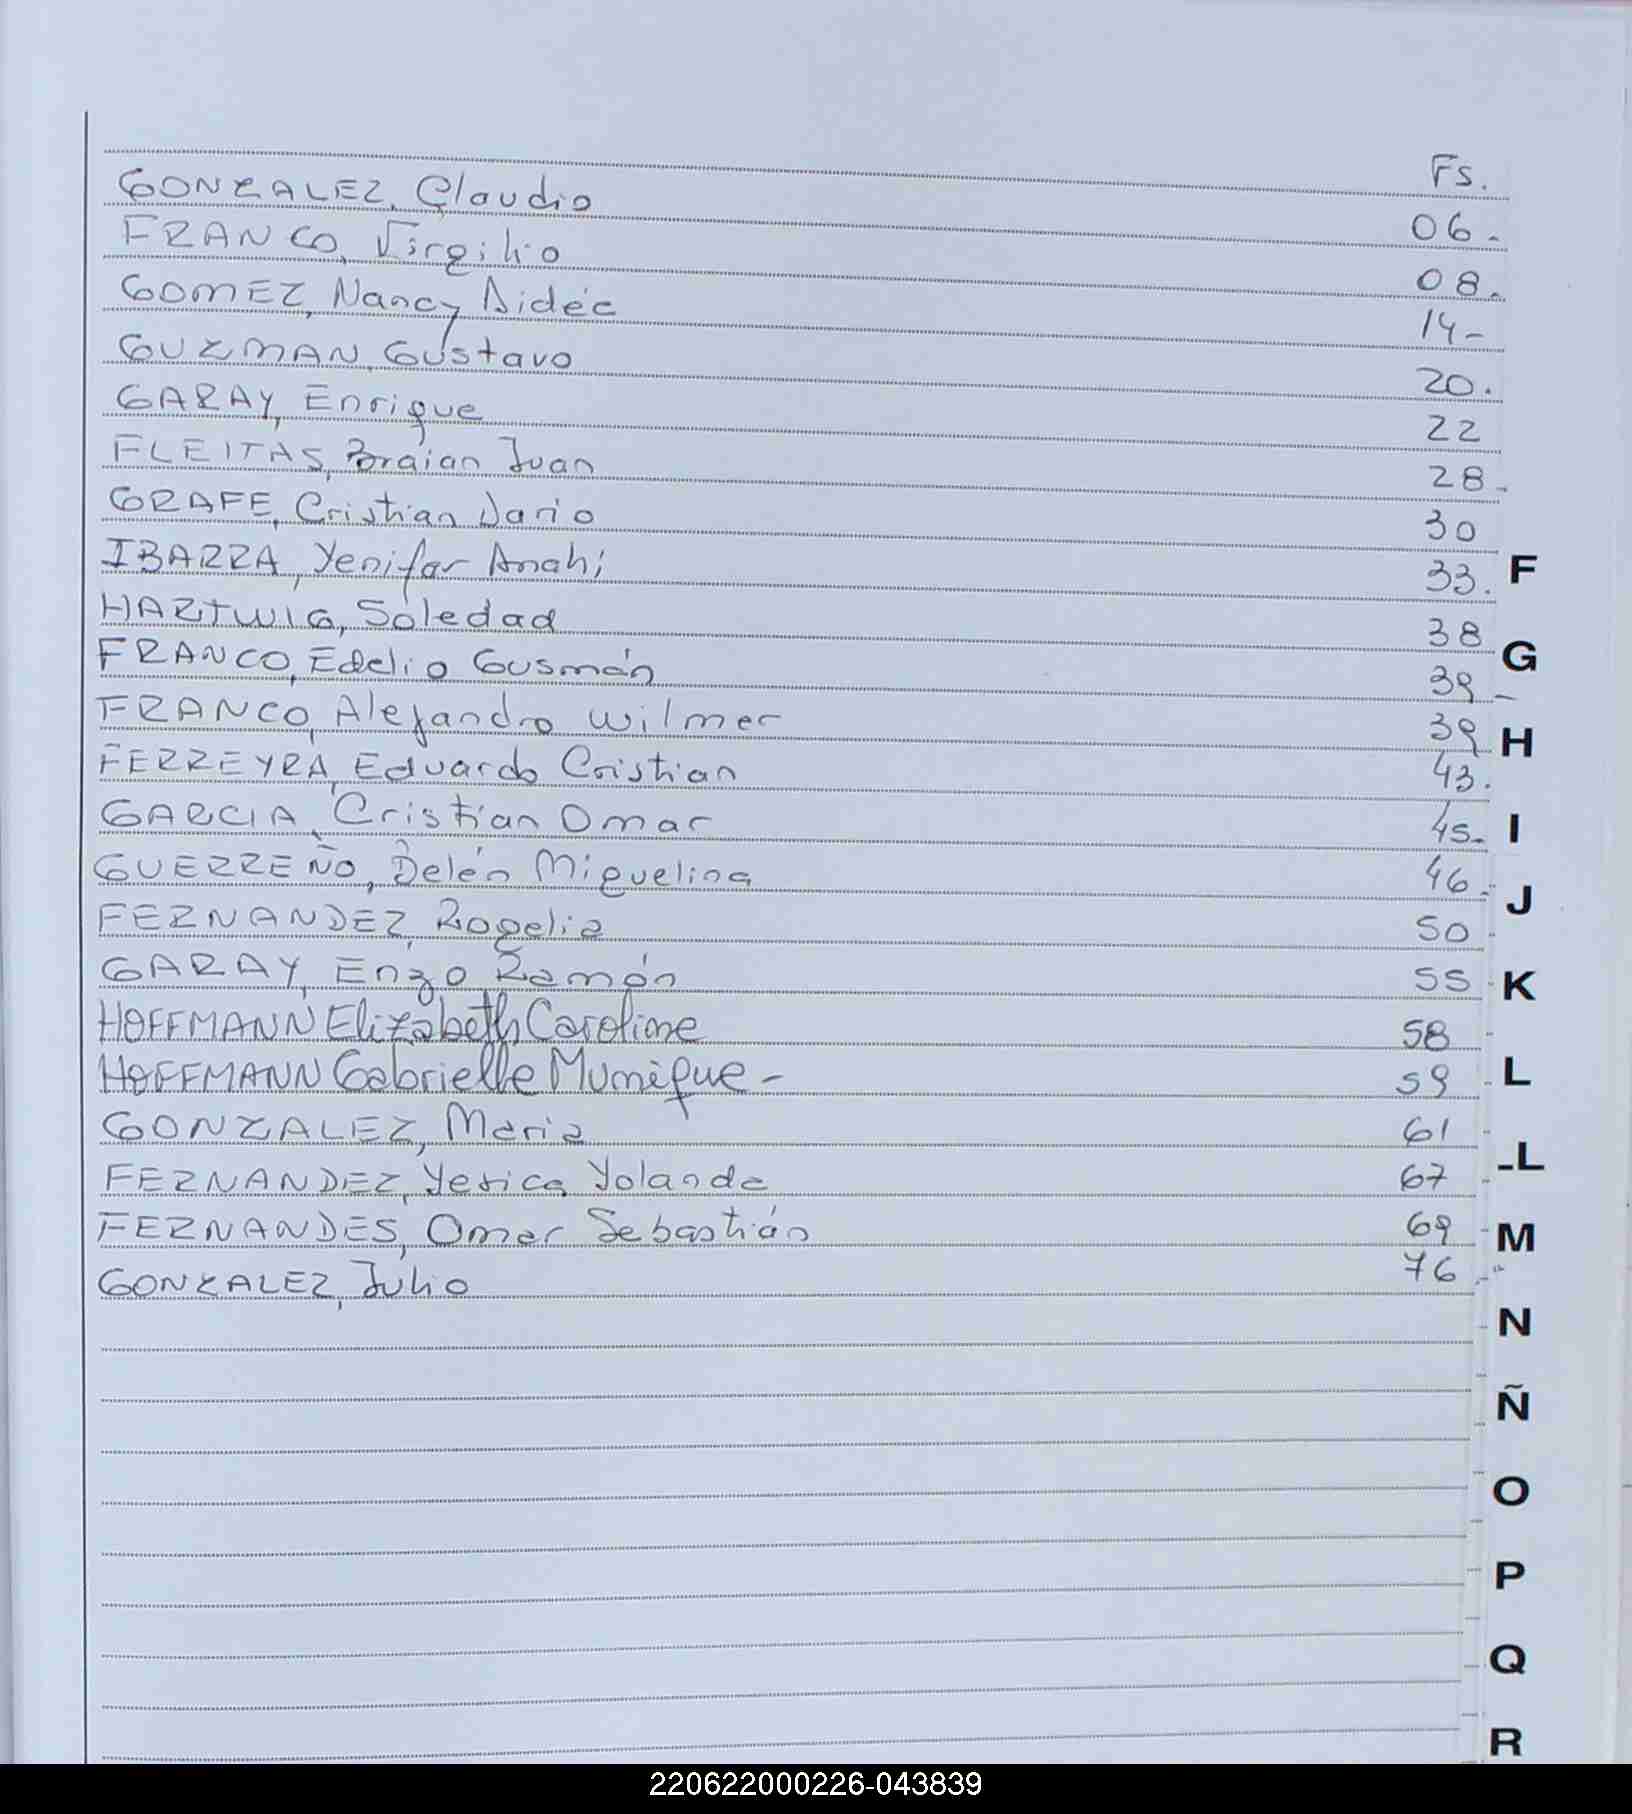 Fs.
GONZALEZ, Claudio 06.
FRANCO, Virgilio 08.
GOMEZ, Nancy Aideé 14-
GUZMAN, Gustavo 20.
GARAY, Enrique 22
FLEITAS, Braian Juan 28.
GRAFE, Cristian Dario 30
IBARRA, Yenifar Anahi 33.
HARTWIG, Soledad 38
FRANCO, Edelio Gusmán 39-
FRANCO, Alejandro Wilmer 39
FERREYRA, Eduardo Cristian 43.
GARCIA, Cristian Omar 45-
GUERREÑO, Belén Miguelina 46.
FERNANDEZ, Rogelia 50
GARAY, Enzo Ramón 55
HOFFMANN Elizabeth Caroline 58
HOFFMANN Gabrielle Munique- 59
GONZALEZ, Maria 61
FERNANDEZ, Yesica Yolanda 67
FERNANDES, Omar Sebastián 69
GONZALEZ, Julio 76
F
G
H
I
J
K
L
-L
M
N
Ñ
O
P
Q
R
220622000226-043839